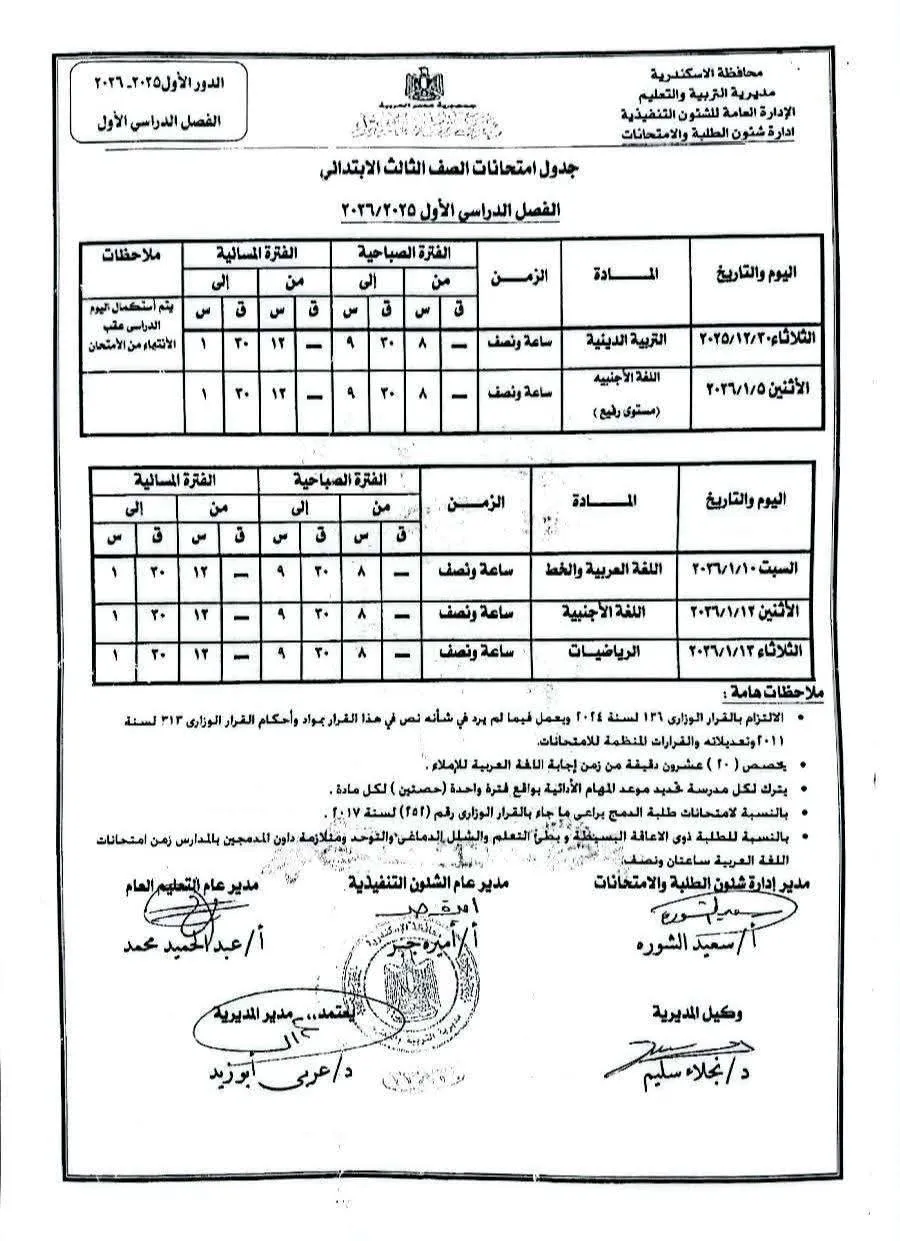 محافظة الاسكندرية
مديرية التربية والتعليم
الإدارة العامة للشئون التنفيذية
ادارة شئون الطلبة والامتحانات
جمهورية مصر العربية
الدور الأول ٢٠٢٥ـ ٢٠٢٦
الفصل الدراسي الأول
جدول امتحانات الصف الثالث الابتدائي
الفصل الدراسي الأول ٢٠٢٦/٢٠٢٥
اليوم والتاريخ المـــادة الزمن الفترة الصباحية الفترة المسائية ملاحظات
من إلى من إلى
ق س ق س ق س ق س
الثلاثاء ٢٠٢٥/١٢/٣٠ التربية الدينية ساعة ونصف — ٨ ٣٠ ٩ — ١٢ ٣٠ ١
يتم أستكمال اليوم
الدراسى عقب
الأنتهاء من الأمتحان
الأثنين ٢٠٢٦/١/٥ اللغة الأجنبيه ساعة ونصف — ٨ ٣٠ ٩ — ١٢ ٣٠ ١
(مستوى رفيع)
اليوم والتاريخ المـــادة الزمـــن الفترة الصباحية الفترة المسائية
من إلى من إلى
ق س ق س ق س ق س
السبت ٢٠٢٦/١/١٠ اللغة العربية والخط ساعة ونصف — ٨ ٣٠ ٩ — ١٢ ٣٠ ١
الأثنين ٢٠٢٦/١/١٢ اللغة الأجنبية ساعة ونصف — ٨ ٣٠ ٩ — ١٢ ٣٠ ١
الثلاثاء ٢٠٢٦/١/١٣ الرياضيـات ساعة ونصف — ٨ ٣٠ ٩ — ١٢ ٣٠ ١
ملاحظات هامة :
• الالتزام بالقرار الوزارى ١٣٦ لسنة ٢٠٢٤ ويعمل فيما لم يرد في شأنه نص في هذا القرار بمواد وأحكام القرار الوزارى ٣١٣ لسنة
٢٠١١ وتعديلاته والقرارات المنظمة للامتحانات.
• يخصص (٢٠) عشرون دقيقة من زمن إجابة اللغة العربية للإملاء .
• يترك لكل مدرسة تحديد موعد المهام الأدائية بواقع فترة واحدة (حصتين) لكل مادة .
• بالنسبة لامتحانات طلبة الدمج يراعى ما جاء بالقرار الوزارى رقم (٢٥٢) لسنة ٢٠١٧ .
• بالنسبة للطلبة ذوى الاعاقة البسيطة و بطئ التعلم والشلل الدماغى والتوحد ومتلازمة داون المدمجين بالمدارس زمن امتحانات
اللغة العربية ساعتان ونصف.
مدير إدارة شئون الطلبة والامتحانات مدير عام الشئون التنفيذية مدير عام التعليم العام
أ/ سعيد الشوره أ/ أميره جبر أ/ عبد الحميد محمد
وكيل المديرية يعتمد،، مدير المديرية
د/ نجلاء سليم د/ عربى أبوزيد
محافظة الإسكندرية
مديرية التربية والتعليم